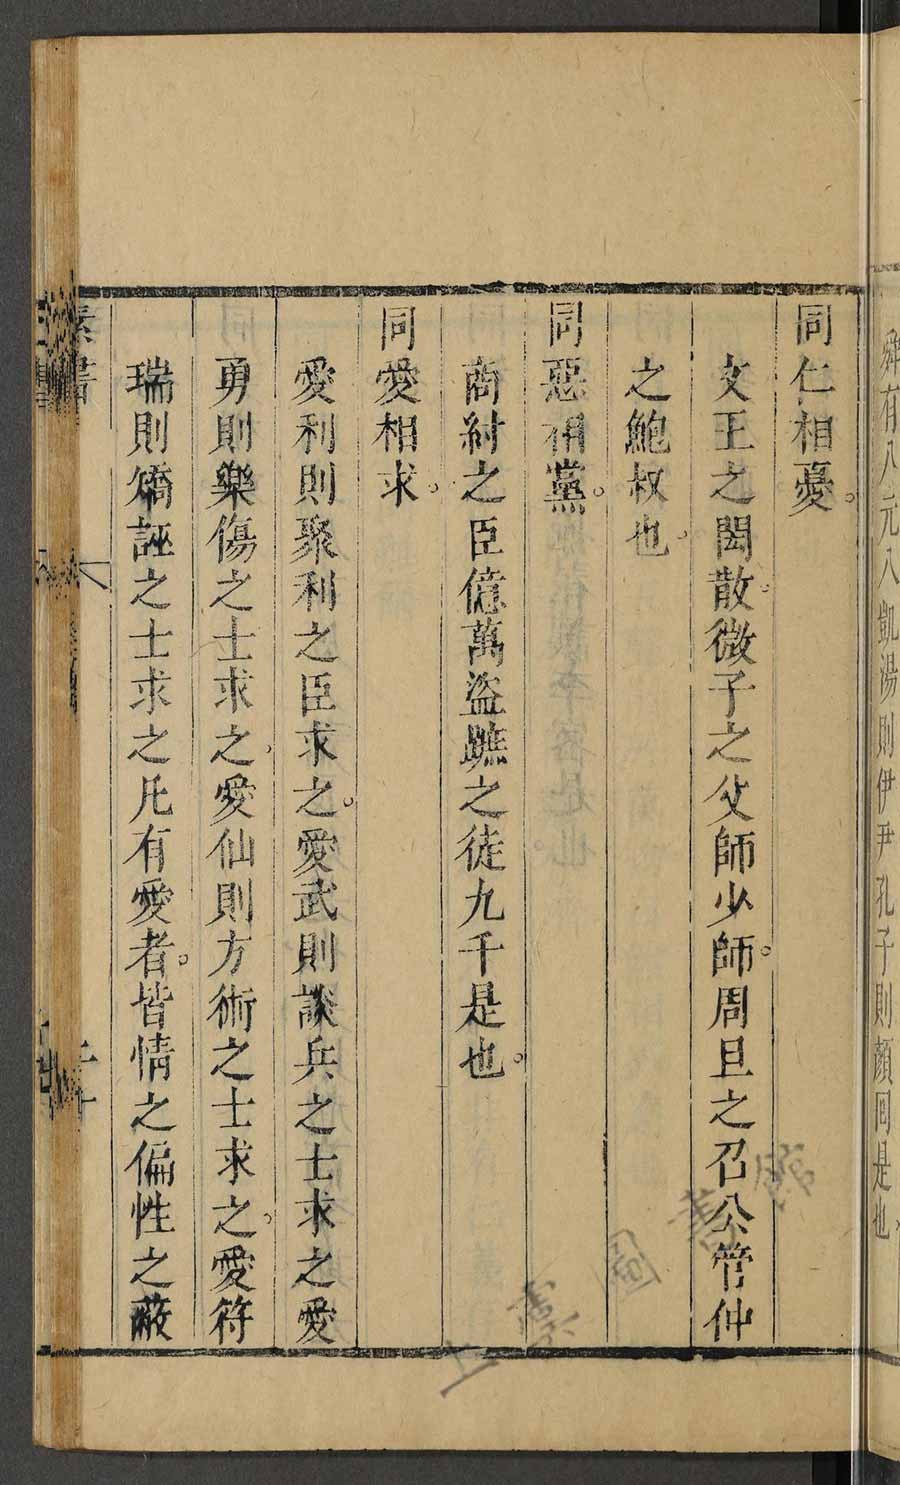 舜有八元八凱湯則伊尹孔子則顏回是也
同仁相憂
文王之閎散微子之父師少師周旦之召公管仲
之鮑叔也
同惡相黨
商紂之臣億萬盜蹠之徒九千是也
同愛相求
愛利則聚利之臣求之愛武則談兵之士求之愛
勇則樂傷之士求之愛仙則方術之士求之愛符
瑞則矯誣之士求之凡有愛者皆情之偏性之蔽
素書